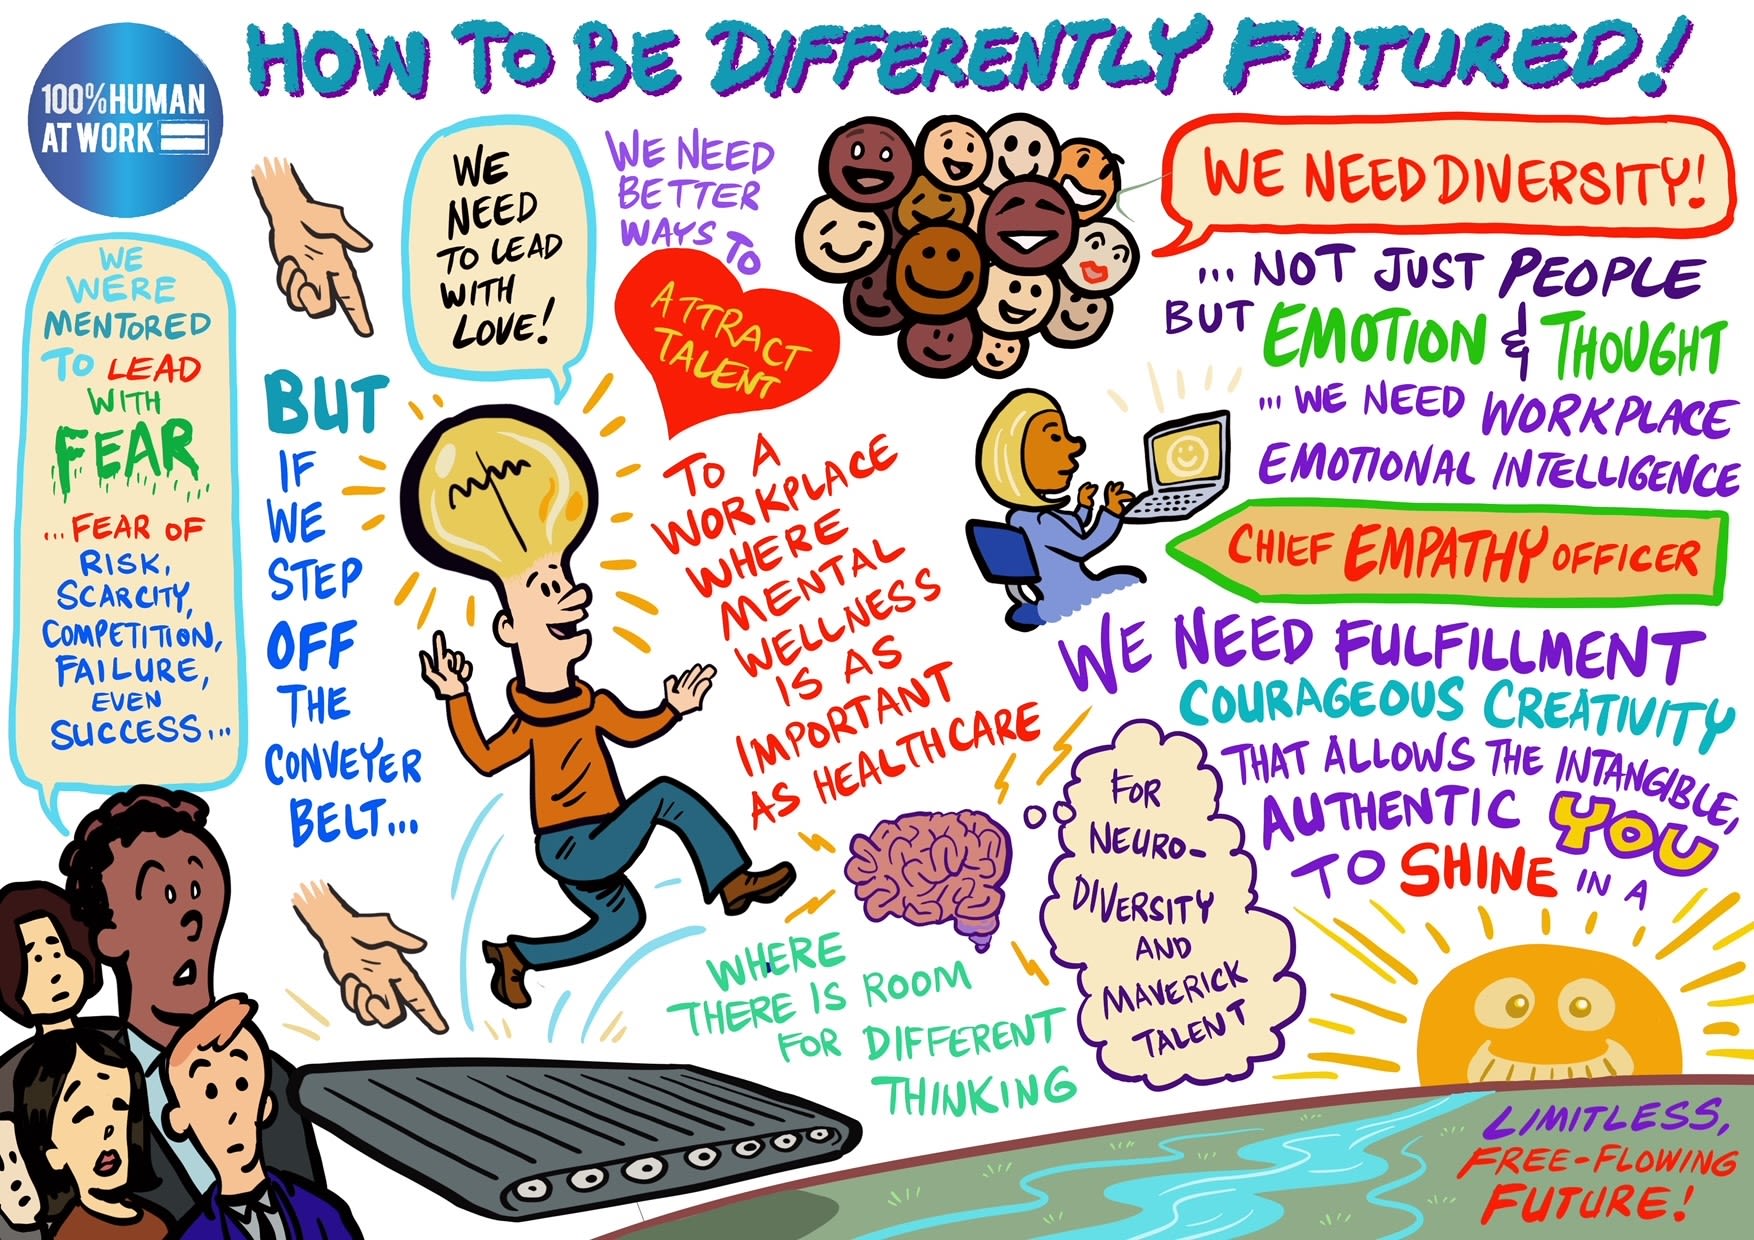 100% HUMAN
AT WORK
HOW TO BE DIFFERENTLY FUTURED!
WE
WERE
MENTORED
TO LEAD
WITH
FEAR
...FEAR OF
RISK,
SCARCITY,
COMPETITION,
FAILURE,
EVEN
SUCCESS...
BUT
IF
WE
STEP
OFF
THE
CONVEYER
BELT...
WE
NEED
TO LEAD
WITH
LOVE!
WE NEED
BETTER
WAYS TO
ATTRACT
TALENT
TO A
WORKPLACE
WHERE
MENTAL
WELLNESS
IS AS
IMPORTANT
AS HEALTHCARE
WHERE
THERE IS ROOM
FOR DIFFERENT
THINKING
FOR
NEURO-
DIVERSITY
AND
MAVERICK
TALENT
WE NEED DIVERSITY!
... NOT JUST PEOPLE
BUT EMOTION & THOUGHT
... WE NEED WORKPLACE
EMOTIONAL INTELLIGENCE
CHIEF EMPATHY OFFICER
WE NEED FULFILLMENT
COURAGEOUS CREATIVITY
THAT ALLOWS THE INTANGIBLE,
AUTHENTIC YOU
TO SHINE IN A
LIMITLESS,
FREE-FLOWING
FUTURE!